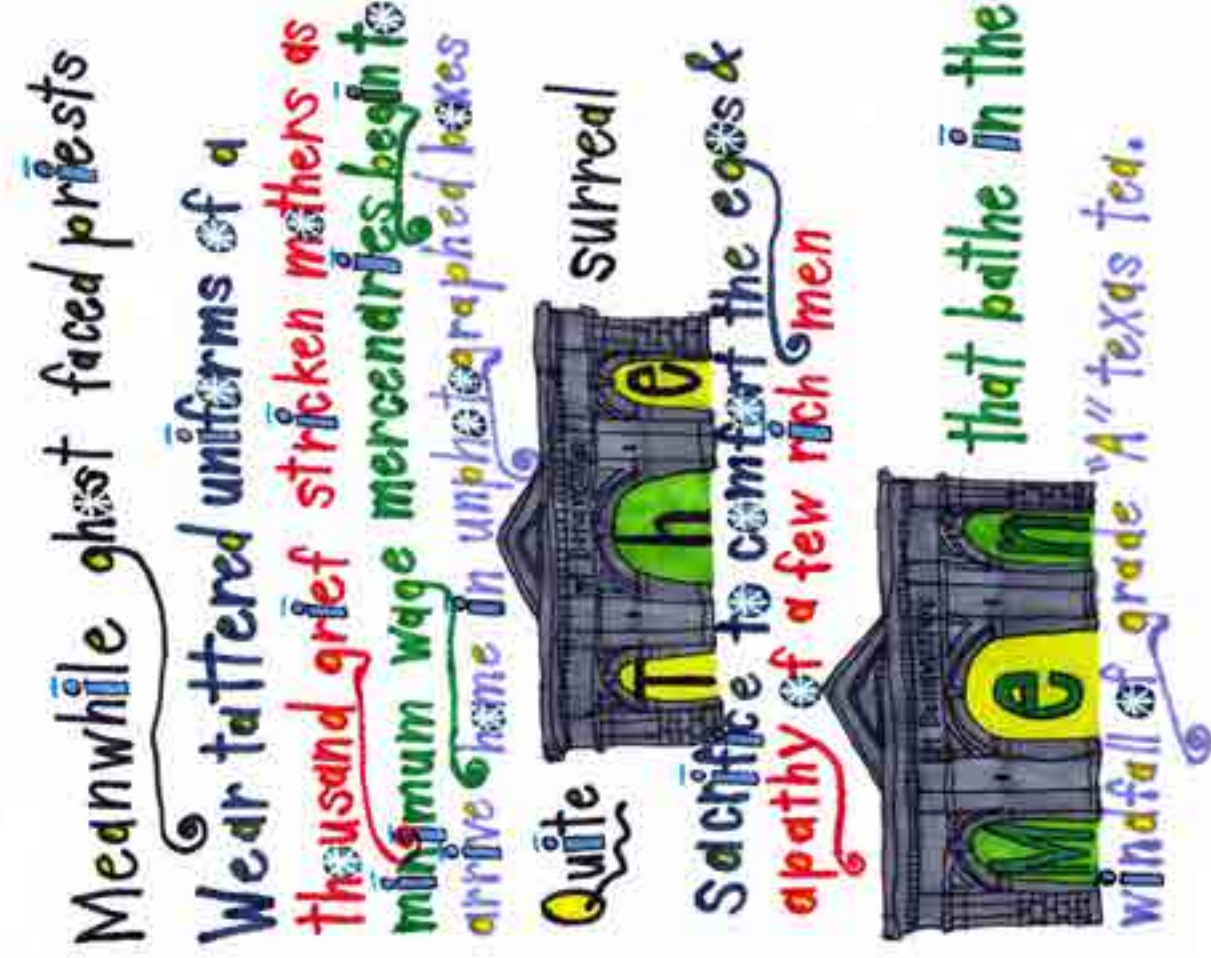 Meanwhile ghost faced priests
Wear tattered uniforms of a
thousand grief stricken mothers as
minimum wage mercenaries begin to
arrive home in unphotographed boxes
Quite The surreal
Sacrifice to comfort the egos &
apathy of a few rich men
Men that bathe in the
windfall of grade "A" texas tea.